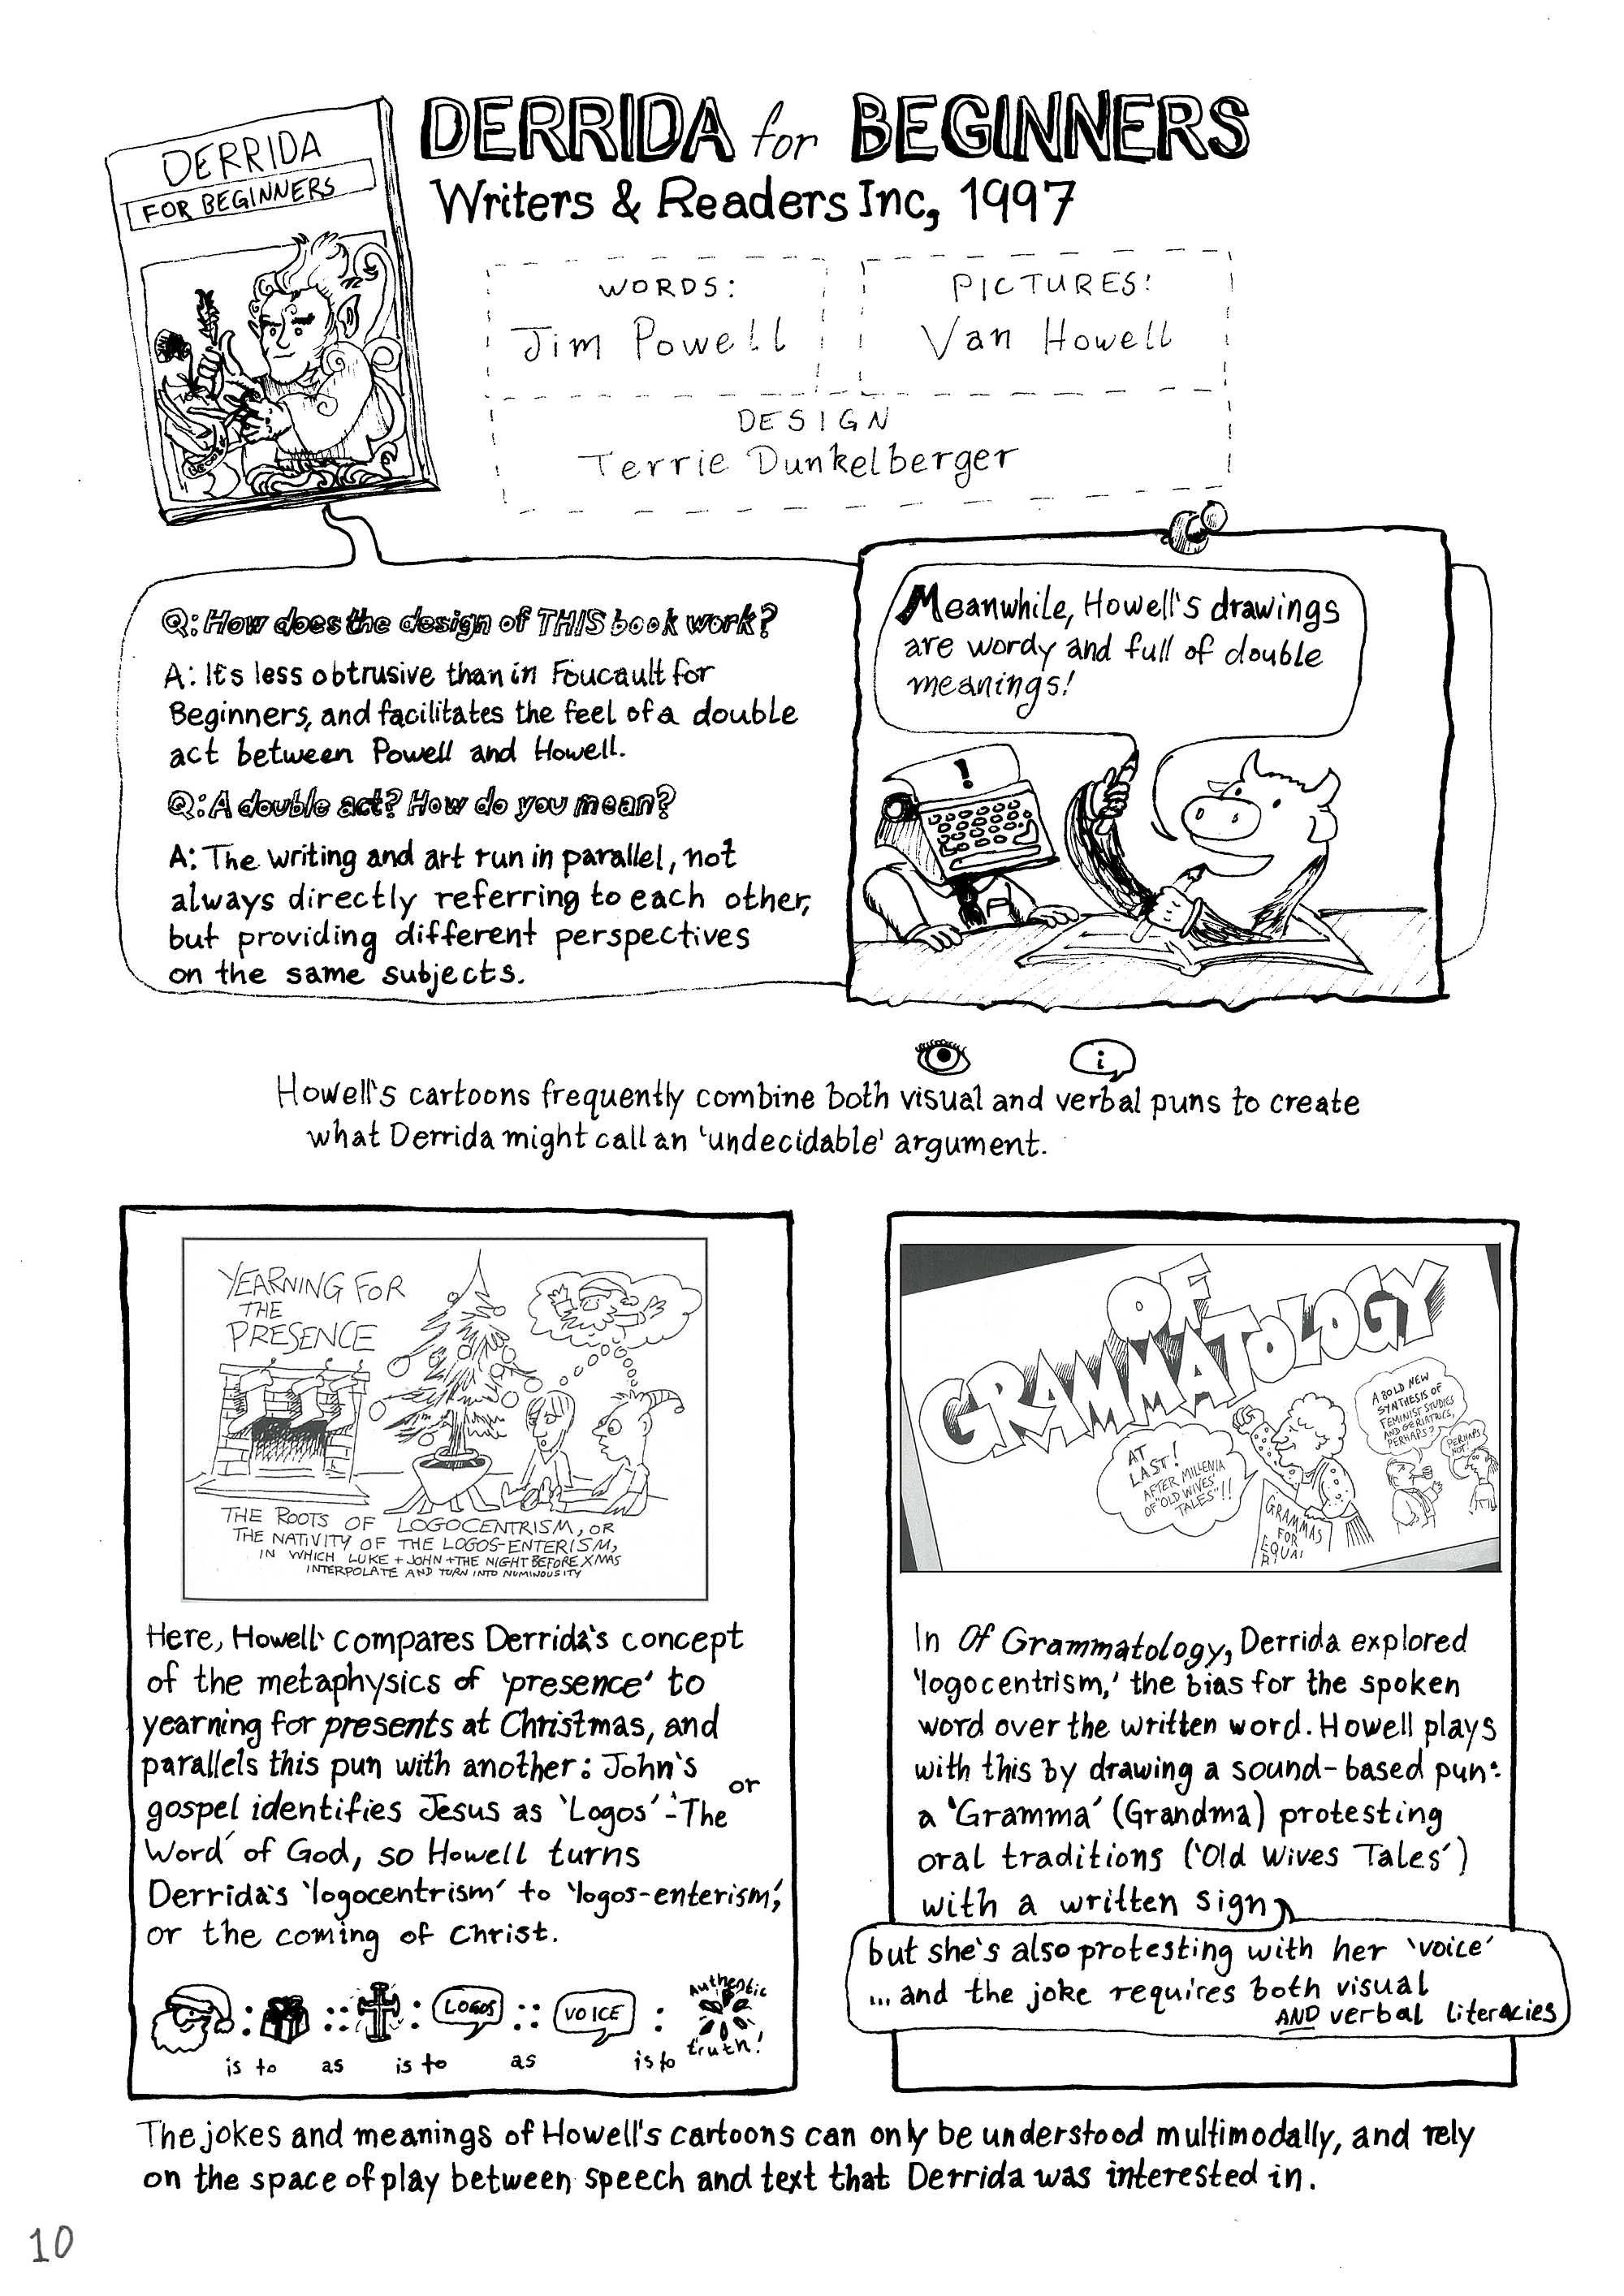 DERRIDA
FOR BEGINNERS
DERRIDA for BEGINNERS
Writers & Readers Inc, 1997
WORDS:
Jim Powell
PICTURES:
Van Howell
DESIGN
Terrie Dunkelberger
Q: How does the design of THIS book work?
A: It's less obtrusive than in Foucault for
Beginners, and facilitates the feel of a double
act between Powell and Howell.
Q: A double act? How do you mean?
A: The writing and art run in parallel, not
always directly referring to each other,
but providing different perspectives
on the same subjects.
Meanwhile, Howell's drawings
are wordy and full of double
meanings!
!
i
Howell's cartoons frequently combine both visual and verbal puns to create
what Derrida might call an 'undecidable' argument.
YEARNING FOR
THE
PRESENCE
THE ROOTS OF LOGOCENTRISM, OR
THE NATIVITY OF THE LOGOS-ENTERISM,
IN WHICH LUKE + JOHN + THE NIGHT BEFORE XMAS
INTERPOLATE AND TURN INTO NUMINOUSITY
Here, Howell compares Derrida's concept
of the metaphysics of 'presence' to
yearning for presents at Christmas, and
parallels this pun with another: John's
gospel identifies Jesus as 'Logos'- or 'The
Word' of God, so Howell turns
Derrida's 'logocentrism' to 'logos-enterism,'
or the coming of Christ.
: :: : LOGOS :: VOICE : Authentic
truth!
is to as is to as is to
OF
GRAMMATOLOGY
AT
LAST!
AFTER MILLENIA
OF "OLD WIVES'
TALES"!!
A BOLD NEW
SYNTHESIS OF
FEMINIST STUDIES
AND GERIATRICS,
PERHAPS?
PERHAPS
NOT.
GRAMMAS
FOR
EQUAL
In Of Grammatology, Derrida explored
'logocentrism,' the bias for the spoken
word over the written word. Howell plays
with this by drawing a sound-based pun:
a 'Gramma' (Grandma) protesting
oral traditions ('Old Wives Tales')
with a written sign
but she's also protesting with her 'voice'
... and the joke requires both visual
AND verbal literacies
The jokes and meanings of Howell's cartoons can only be understood multimodally, and rely
on the space of play between speech and text that Derrida was interested in.
10